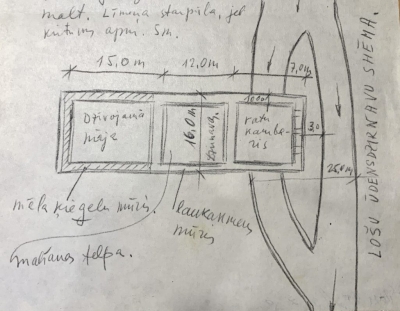 malt. Līmeņa starpība, jel
kritums apm. 5m.
15,0m
12,0m
7,0m
Dzīvojamā
māja
16,0m
ratu
kamba-
ris
3,0
māla ķieģeļu mūris.
laukakmeņu
mūris
malšanas telpa.
LOŠU ŪDENSDZIRNAVU SHĒMA.